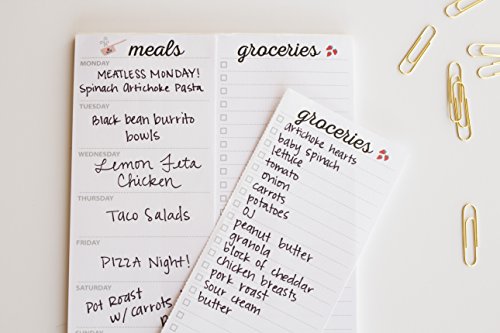 meals
MONDAY
MEATLESS MONDAY!
Spinach Artichoke Pasta
TUESDAY
Black bean burrito
bowls
WEDNESDAY
Lemon Feta
Chicken
THURSDAY
Taco Salads
FRIDAY
PIZZA Night!
SATURDAY
Pot Roast
w/ carrots
groceries
groceries
artichoke hearts
baby spinach
lettuce
tomato
onion
carrots
potatoes
OJ
peanut butter
granola
block of cheddar
chicken breasts
pork roast
sour cream
butter